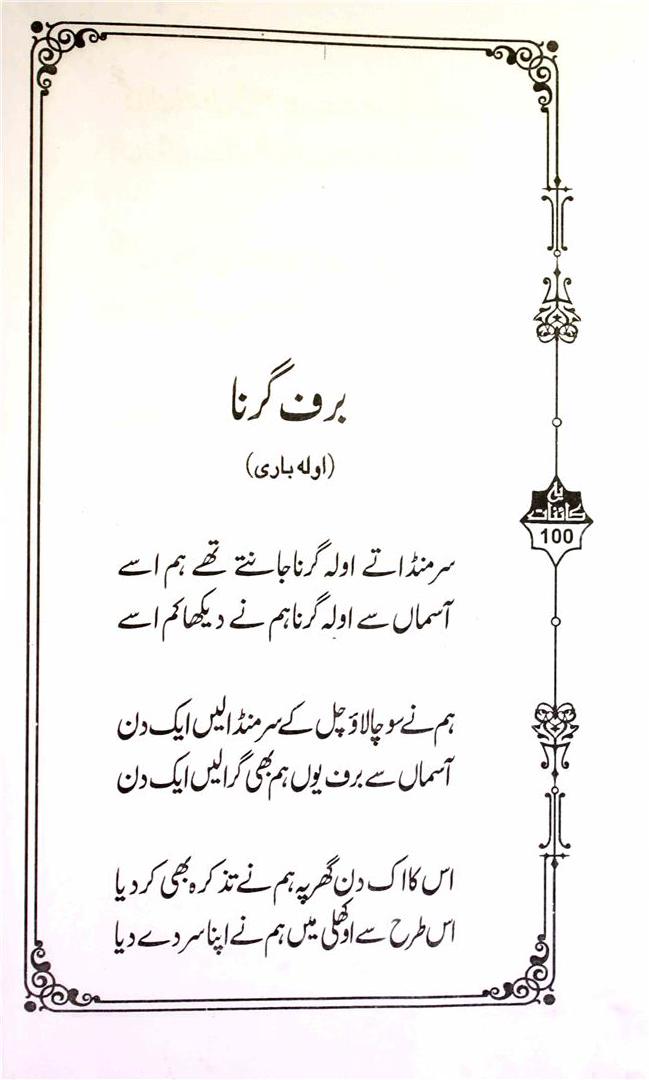 برف گرنا
(اولہ باری)
یہ
کائنات
100
سر منڈاتے اولہ گرنا جانتے تھے ہم اسے
آسماں سے اولہ گرنا ہم نے دیکھا کم اسے
ہم نے سوچا لاؤ چل کے سر منڈا لیں ایک دن
آسماں سے برف یوں ہم بھی گرا لیں ایک دن
اس کا اک دن گھر پہ ہم نے تذکرہ بھی کر دیا
اس طرح سے اوکھلی میں ہم نے اپنا سر دے دیا